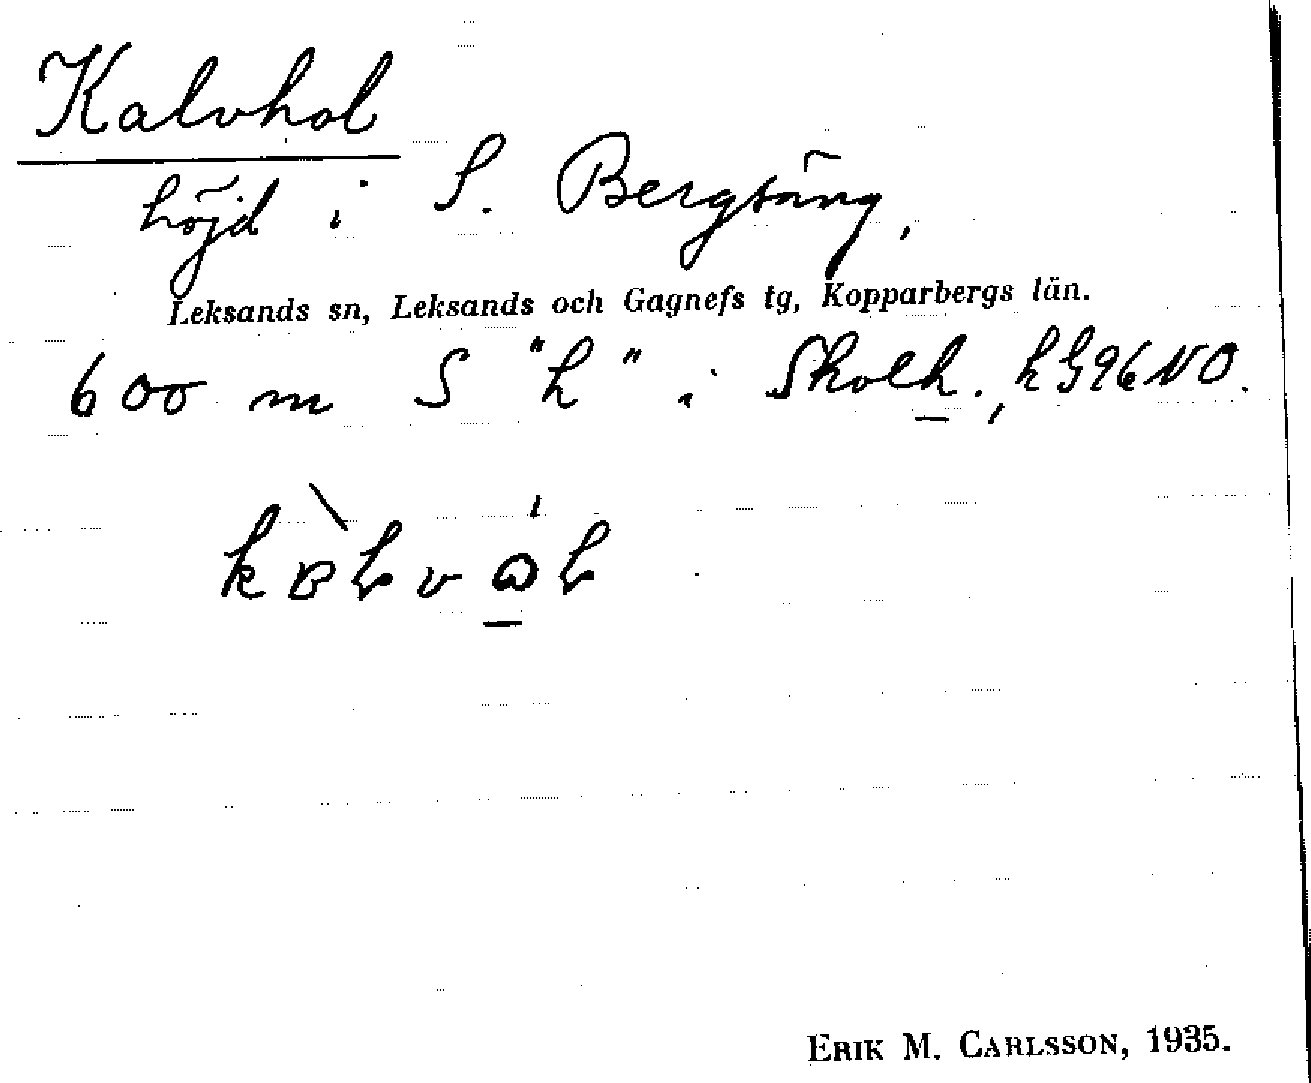 Kalvhol
höjd i S. Bergsäng,
Leksands sn, Leksands och Gagnefs tg, Kopparbergs län.
600 m S "h" i Skolh., hG96NO.
ERIK M. CARLSSON, 1935.